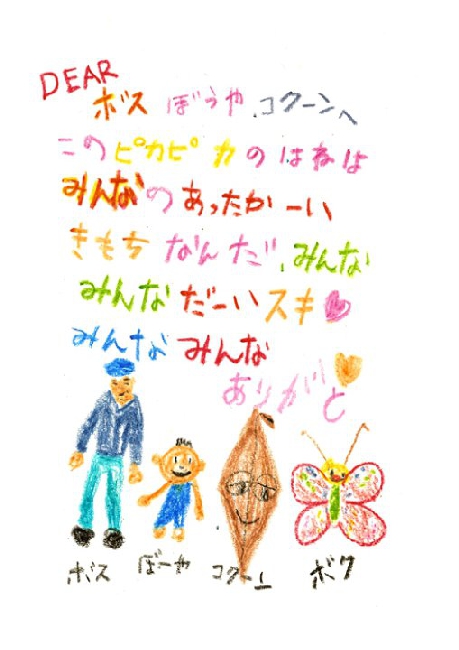 DEAR
ボス ぼうや、コクーンへ
このピカピカのはねは
みんなのあったかーい
きもちなんだ、みんな
みんなだーいスキ
みんなみんな
ありがと
ボス
ぼーや
コクーン
ボク